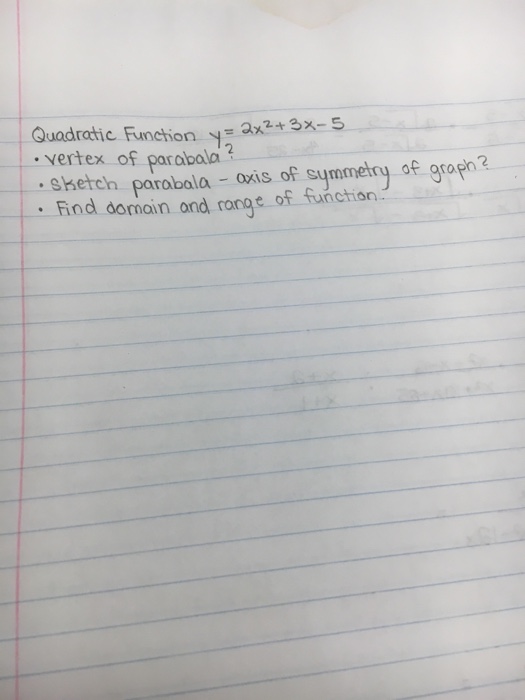 Quadratic Function y = 2x²+3x-5
• vertex of parabala?
• sketch parabala - axis of symmetry of graph?
• Find domain and range of function.